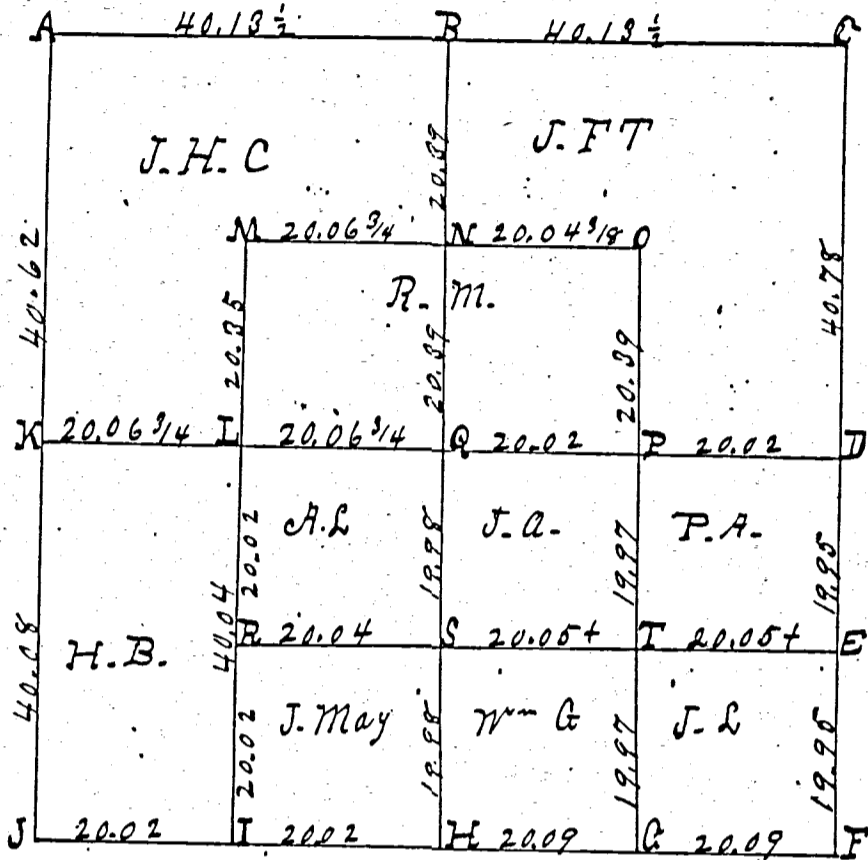 A 40.13½ B 40.13½ C
J.H.C
J.FT
20.39
M 20.06 3/4 N 20.04 3/8 O
40.62
R. M.
20.35
20.39
20.39
40.78
K 20.06 3/4 L 20.06 3/4 Q 20.02 P 20.02 D
A.L
J.A.
P.A.
20.02
19.98
19.97
19.95
40.04
R 20.04 S 20.05+ T 20.05+ E
H.B.
40.08
J. May
Wm G
J-L
20.02
19.98
19.97
19.95
J 20.02 I 20.02 H 20.09 G 20.09 F